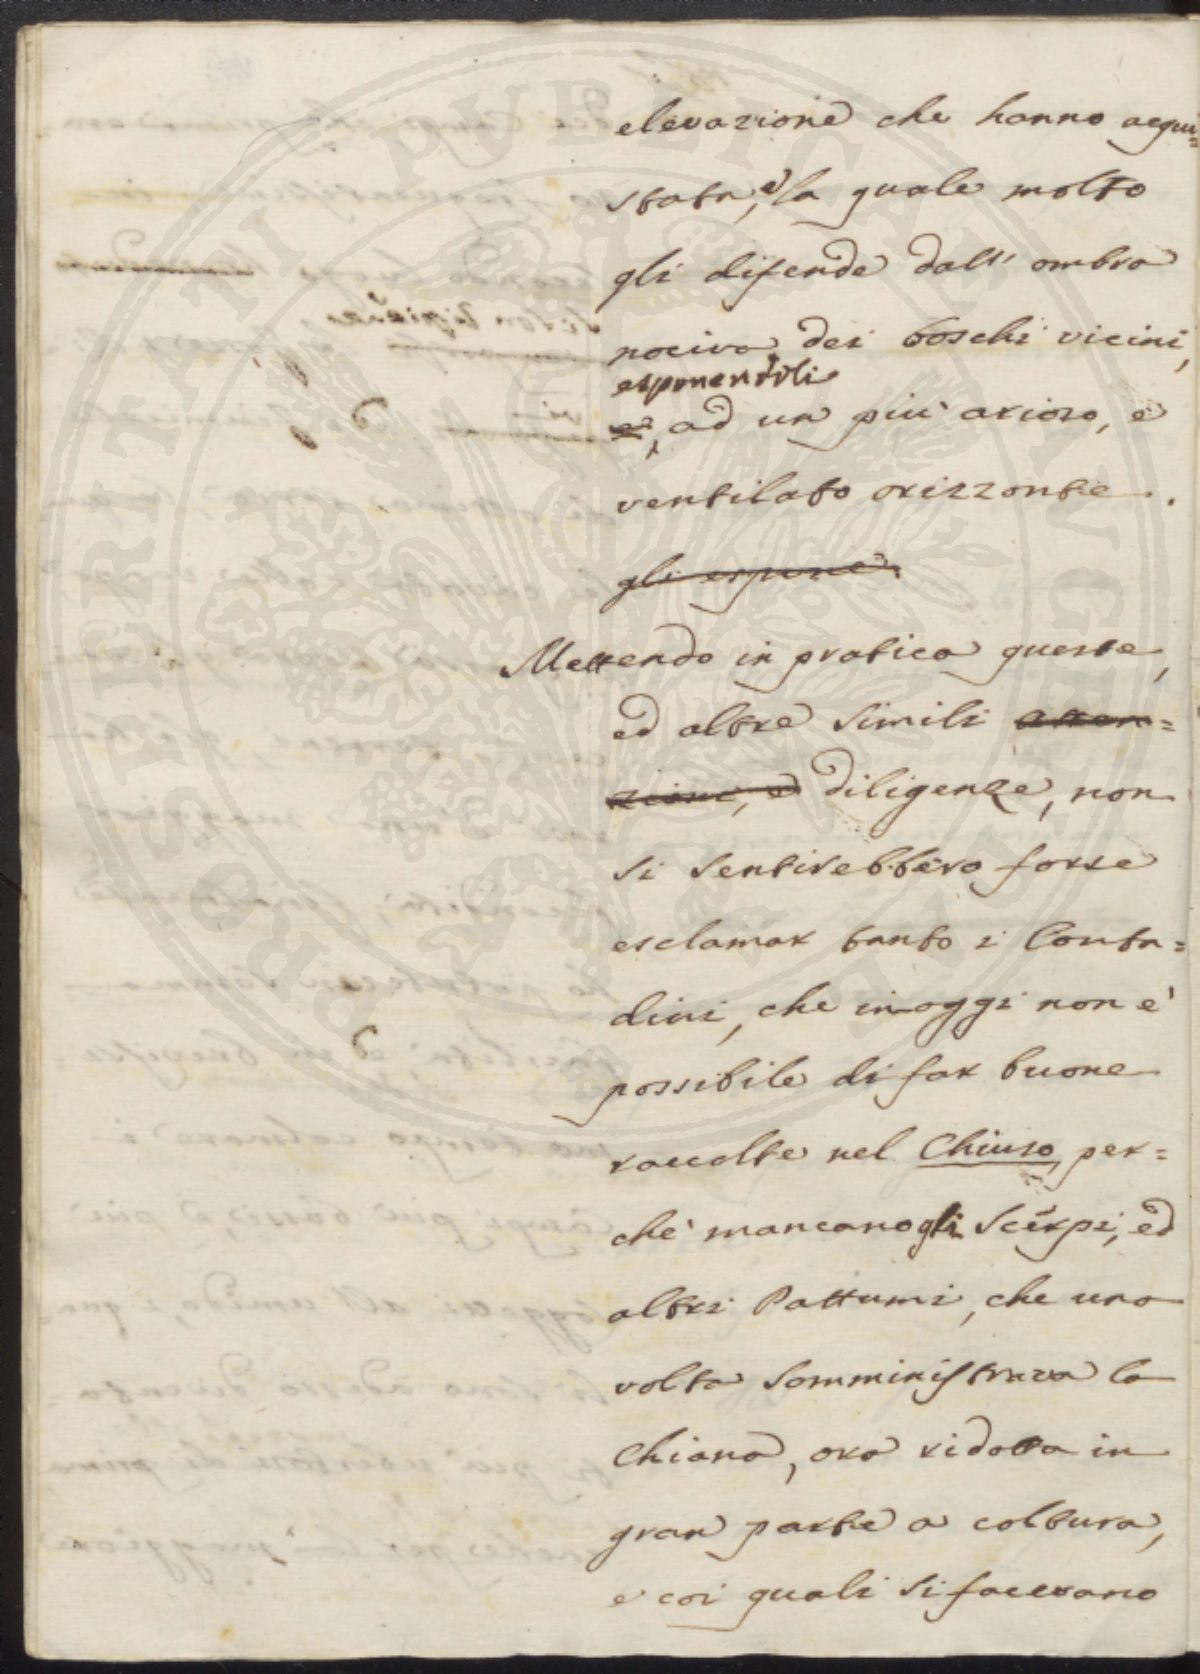 elevazione che hanno acqui=
stata, e la quale molto
gli difende dall' ombra
nociva dei boschi vicini,
esponendoli
e, ad un più arioso, e
ventilato orizzonte.
gli espone.
Mettendo in pratica queste,
ed altre simili atten=
zioni, e diligenze, non
si sentirebbero forse
esclamar tanto i Conta=
dini, che in oggi non è
possibile di far buone
raccolte nel Chiuso, per=
chè mancano gli Scirpi, ed
altri Pattumi, che una
volta somministrava la
Chiana, ora ridotta in
gran parte a coltura,
e coi quali si facevano